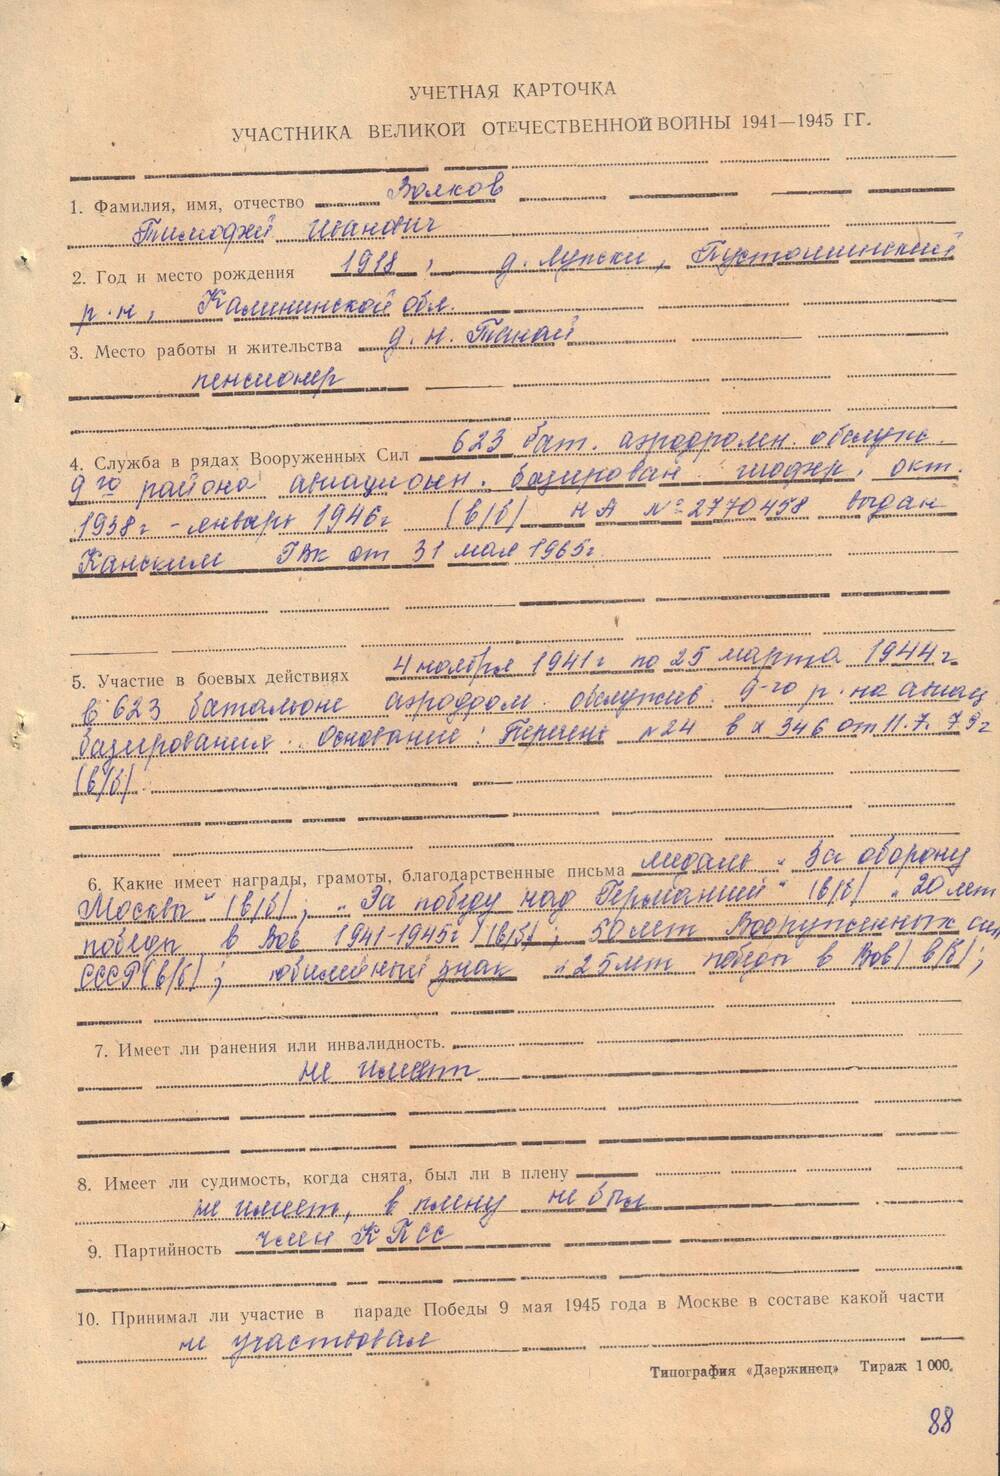 УЧЕТНАЯ КАРТОЧКА
УЧАСТНИКА ВЕЛИКОЙ ОТЕЧЕСТВЕННОЙ ВОЙНЫ 1941—1945 ГГ.
1. Фамилия, имя, отчество Волков
Тимофей Иванович
2. Год и место рождения 1918, д. Лупски, Пустошинский
р-н, Калининской обл.
3. Место работы и жительства д. Н. Танай
пенсионер
4. Служба в рядах Вооруженных Сил 623 бат. аэродромн. обслуж.
9го района авиационн. базирован шофер, окт.
1938г - январь 1946г (в/б) НА № 2770458 выдан
Канским ГВК от 31 мая 1965г.
5. Участие в боевых действиях 4 ноября 1941г по 25 марта 1944г
в 623 батальоне аэродром. обслужив. 9-го р-на авиац
базирования. Основание: Перечень №24 в х 346 от 11.7.79г
(в/б).
6. Какие имеет награды, грамоты, благодарственные письма медаль „За оборону
Москвы" (в/б); „За победу над Германией" (в/б) „20 лет
победы в Вов 1941-1945г (в/б); 50 лет Вооруженных сил
СССР (в/б); юбилейный знак „25 лет победы в Вов) в/б);
7. Имеет ли ранения или инвалидность.
не имеет
8. Имеет ли судимость, когда снята, был ли в плену
не имеет, в плену не был
9. Партийность член КПСС
10. Принимал ли участие в параде Победы 9 мая 1945 года в Москве в составе какой части
не участвовал
Типография «Дзержинец» Тираж 1 000.
88